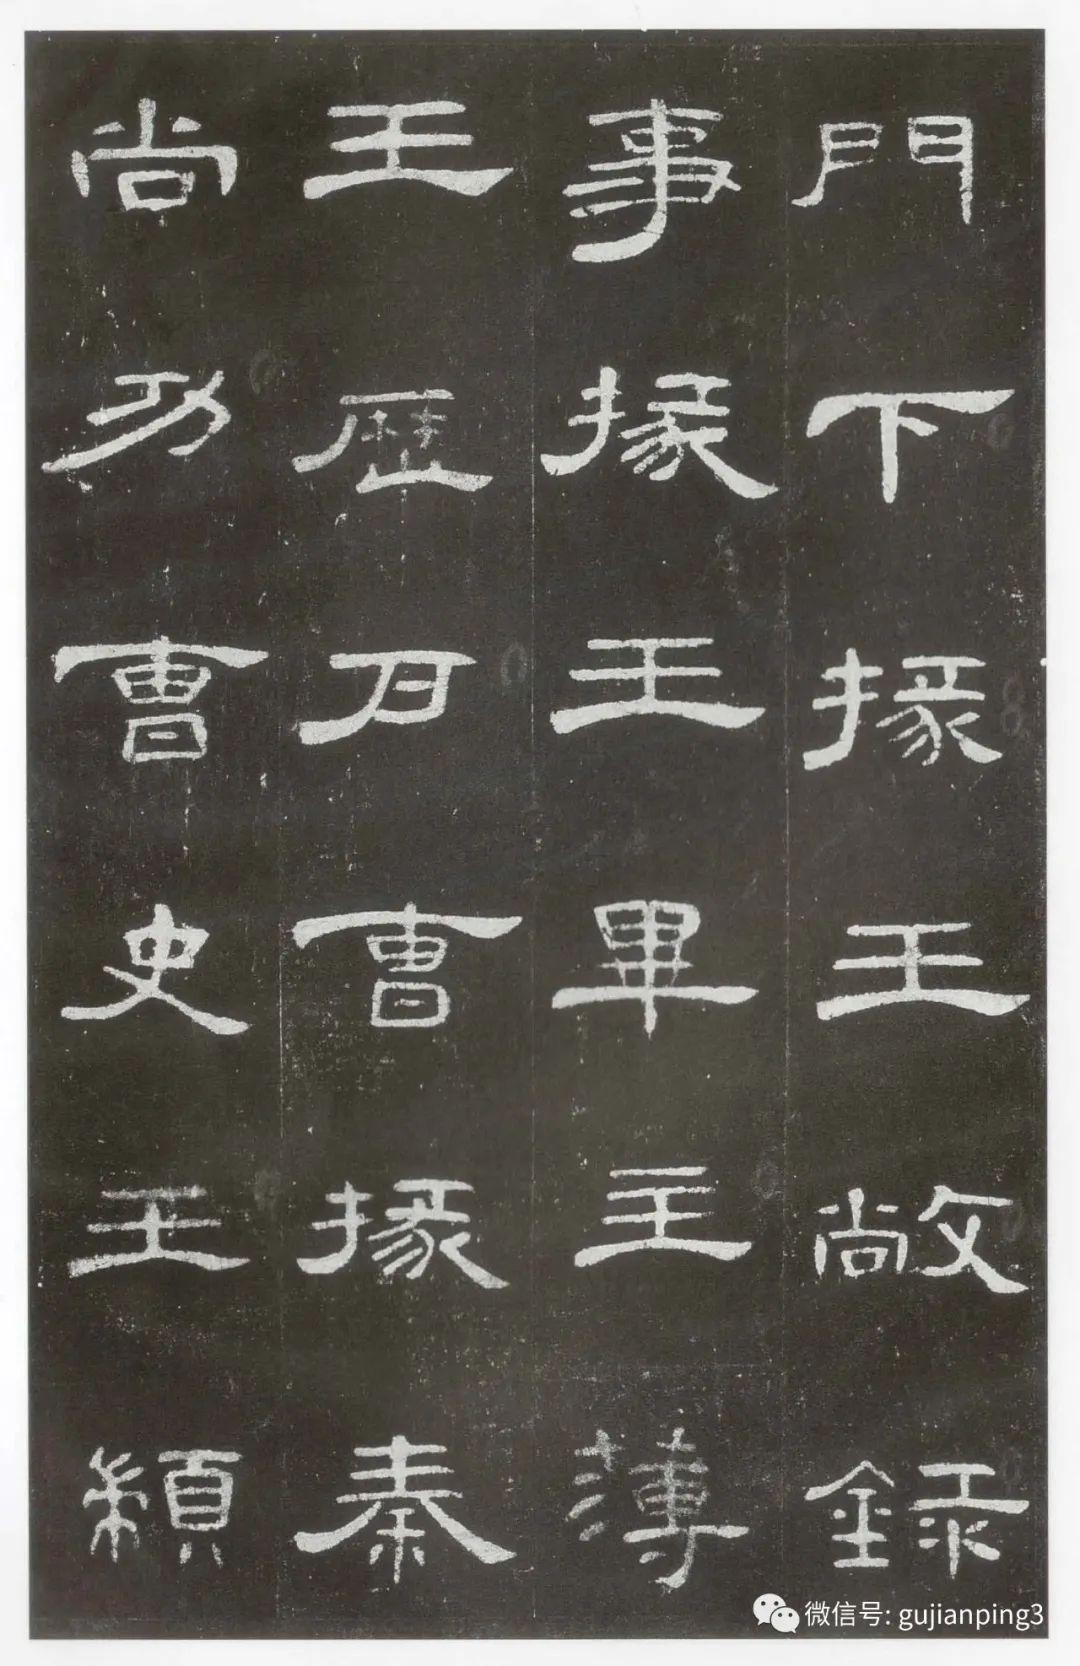 門下掾王敞錄
事掾王畢主薄
王歷户曹掾秦
尚功曹史王顓
微信号: gujianping3